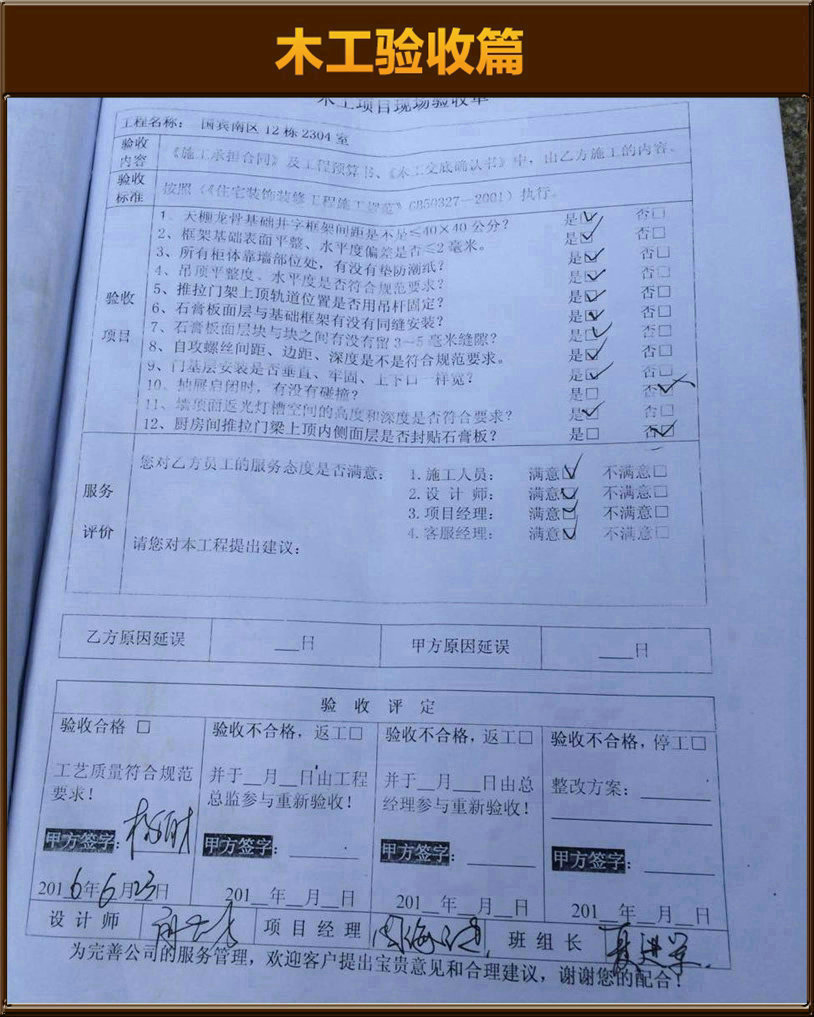 木工验收篇
木工项目现场验收单
工程名称： 国宾南区12栋2304室
验收内容 《施工承担合同》及工程预算书、《木工交底确认书》中，由乙方施工的内容。
验收标准 按照《《住宅装饰装修工程施工规范》GB50327-2001）执行。
验收项目
1、天棚龙骨基础井字框架间距是不是≤40×40公分？ 是☑ 否□
2、框架基础表面平整、水平度偏差是否≤2毫米。 是☑ 否□
3、所有柜体靠墙部位处，有没有垫防潮纸？ 是☑ 否□
4、吊顶平整度、水平度是否符合规范要求？ 是☑ 否□
5、推拉门架上顶轨道位置是否用吊杆固定？ 是☑ 否□
6、石膏板面层与基础框架有没有同缝安装？ 是☑ 否□
7、石膏板面层块与块之间有没有留3-5毫米缝隙？ 是☑ 否□
8、自攻螺丝间距、边距、深度是不是符合规范要求。 是☑ 否□
9、门基层安装是否垂直、牢固、上下口一样宽？ 是☑ 否□
10、抽屉启闭时，有没有碰撞？ 是□ 否☑
11、墙顶面返光灯槽空间的高度和深度是否符合要求？ 是☑ 否□
12、厨房间推拉门梁上顶内侧面层是否封贴石膏板？ 是□ 否☑
服务评价
您对乙方员工的服务态度是否满意： 1.施工人员： 满意☑ 不满意□
2.设计师： 满意☑ 不满意□
3.项目经理： 满意☑ 不满意□
4.客服经理： 满意☑ 不满意□
请您对本工程提出建议：
乙方原因延误 ___日 甲方原因延误 ___日
验收评定
验收合格 □ 验收不合格，返工□ 验收不合格，返工□ 验收不合格，停工□
工艺质量符合规范 并于__月__日由工程 并于__月__日由总 整改方案：
要求！ 总监参与重新验收！ 经理参与重新验收！
甲方签字： 甲方签字： 甲方签字： 甲方签字：
2016年6月23日 201__年__月__日 201__年__月__日 201__年__月__日
设计师 项目经理 班组长
为完善公司的服务管理，欢迎客户提出宝贵意见和合理建议，谢谢您的配合！